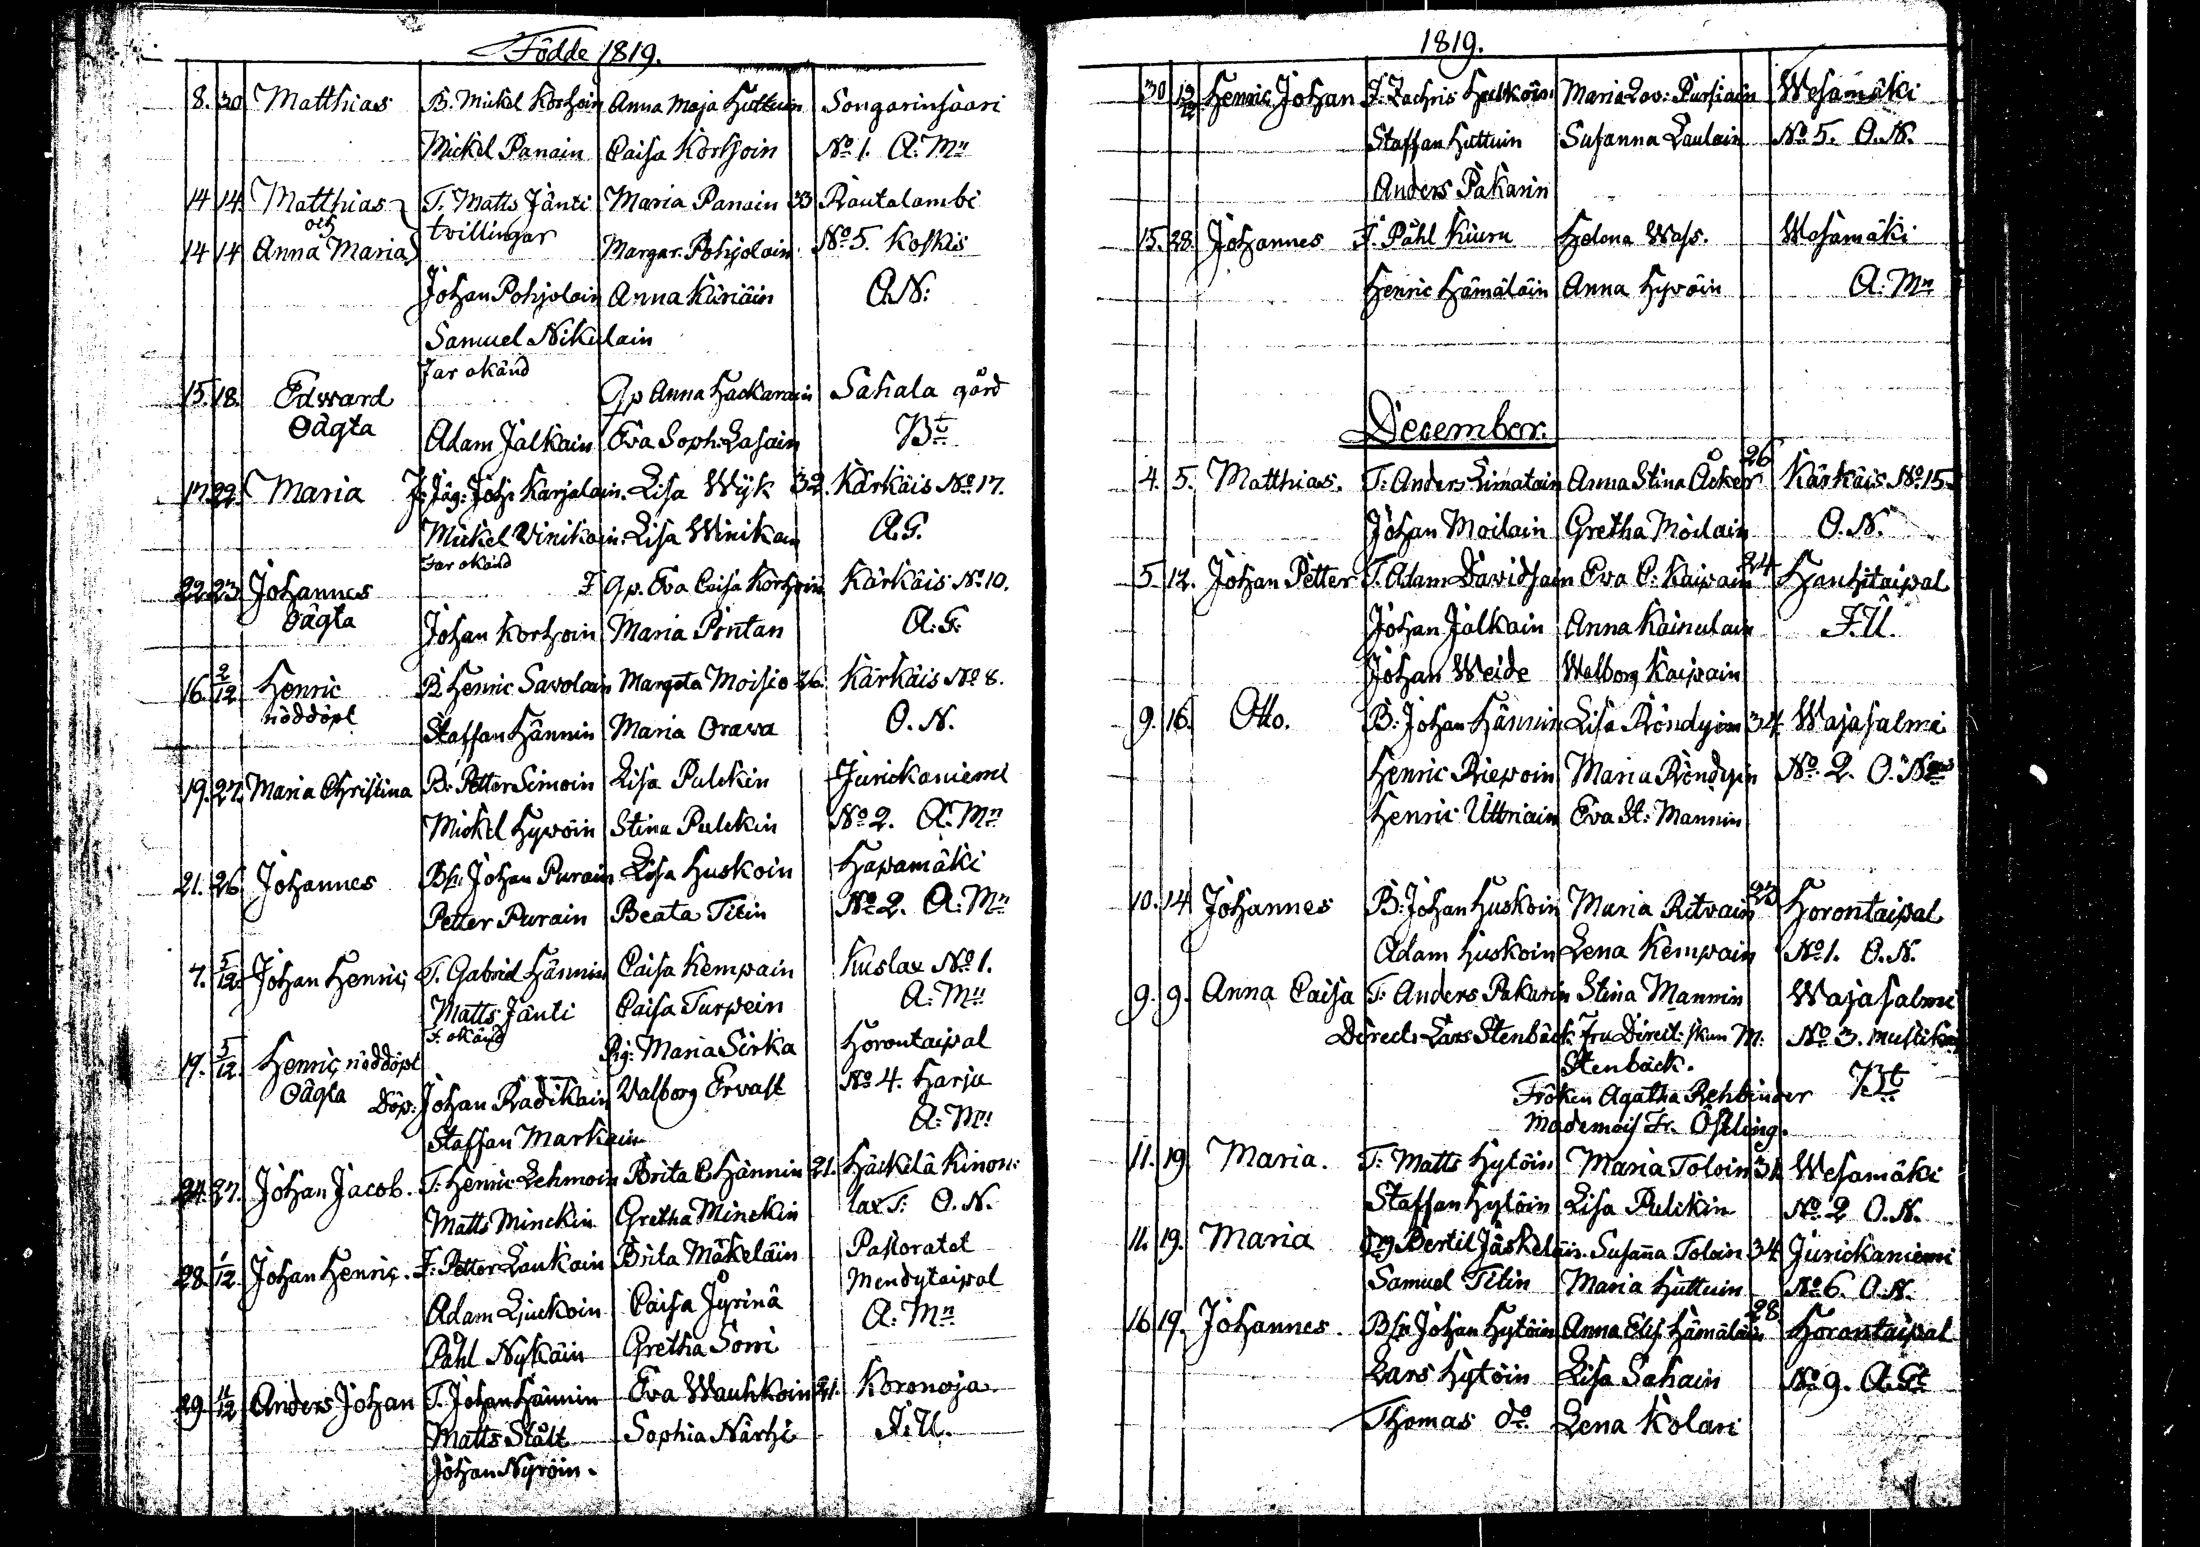 Födde 1819.
8. 30 Matthias B. Mickel Korhoin Anna Maja Huttuin Songarinsaari
Mickel Panain Caisa Korhoin No 1. A. Mn
14 14. Matthias T. Matts Jänti Maria Panain 33 Rautalambi
och tvillingar
14 14 Anna Maria Margar. Pohjolain No 5. Koskis
Johan Pohjolain Anna Kiniäin O.N:
Samuel Nikulain
Far okänd
15. 18. Edward Qp Anna Hackarain Sahala gård
Oägta Adam Jalkain Eva Soph: Lasain Bt
17. 22. Maria F: Jäg: Joh: Karjalain. Lisa Wijk 32. Kärkäis No 17.
Mickel Vinikain. Lisa Winikain A.G.
Far okänd
22. 23. Johannes F Qp. Eva Caisa Korhoin Kärkäis No 10.
Oägta Johan Korhoin Maria Pöntan A.G.
16. 2/12 Henric B. Henric Savolain Margeta Moisio 36. Kärkäis No 8.
nöddöpt Staffan Hännin Maria Orawa O.N.
19. 27. Maria Christina B: Petter Simoin Lisa Pulckin Jurickaniemi
Mickel Hyvöin Stina Pulckin No 2. A. Mn
21. 26 Johannes Bsn: Johan Purain Lisa Huskoin Hapamäki
Petter Purain Beata Titin No 2. A: Mn
7. 5/12 Johan Henric T. Gabriel Hännin Caisa Kempain Kuslax No 1.
Matts Jänti Caisa Turpein A: Mn
F. okänd
19. 5/12. Henric nöddöpt Pig: Maria Sirka Horontaipal
Oägta Döp: Johan Radikain Valborg Ervast No 4. Harju
Staffan Markain A: Mn
24. 27. Johan Jacob. T: Henric Lehmoin Brita C Hännin 21. Häckilä Kinon:
Matts Minckin Gretha Minckin lax T: O.N.
28. 1/12. Johan Henric. F: Petter Laukain Brita Mäkeläin Pastoratet
Adam Liuckoin Caisa Jyrinä Mendytaipal
Påhl Nykäin Gretha Sorri A: Mn
29 11/12 Anders Johan T. Johan Hännin Eva Wauhkoin 21. Koronoja
Matts Stålt Sophia Närhi F.U.
Johan Nyröin.
1819.
30 12/12 Henric Johan F. Zachris Hulkoin Maria Lov: Pursiain Wesamäki
Staffan Huttuin Susanna Laulain No 5. O.N.
Anders Pakarin
15. 28. Johannes F. Påhl Kiuru Helena Wass. Wesamäki
Henric Hämäläin Anna Hyvöin A: Mn
December.
4. 5. Matthias. T: Anders Limatain Anna Stina Åcker 26 Kärkäis No 15.
Johan Moilain Gretha Moilain O.N.
5. 12. Johan Petter T. Adam Davidsain Eva C: Kaipain 24 Hanhitaipal
Johan Jalkain Anna Kainulain F.U.
Johan Weide Walborg Kaipain
9. 16. Otto. B: Johan Hännin Lisa Röndyin 34. Wajasalmi
Henric Riepoin Maria Röndyin No 2. O. N
Henric Uttriain Eva St: Mannin
10. 14 Johannes B: Johan Huskoin Maria Ritvain 23 Horontaipal
Adam Huskoin Lena Kempain No 1. O.N.
9. 9. Anna Caisa T: Anders Pakarin Stina Mannin Wajasalmi
Direct: Lars Stenbäck. Fru Direct:skan M: No 3. Mustika
Stenbäck. Bt
Fröken Agatha Rehbinder
Mademois Fr. Östling.
11. 19 Maria. T: Matts Hytöin Maria Toloin 31 Wesamäki
Staffan Hytöin Lisa Pulckin No 2 O.N.
11. 19. Maria Bertil Jäskeläin. Susanna Toloin 34 Jurickaniemi
Samuel Titin Maria Huttuin No 6. O.N.
16 19. Johannes. Bsn Johan Hytöin Anna Elis Hämäläin 28 Horontaipal
Lars Hytöin Lisa Sahain No 9. A. Gt
Thomas do Lena Kolari